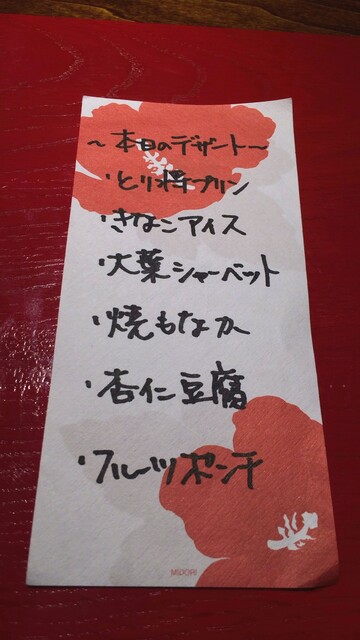 ～本日のデザート～
・とろ棒プリン
・きなこアイス
・大葉シャーベット
・焼もなかー
・杏仁豆腐
・フルーツポンチ
MIDORI